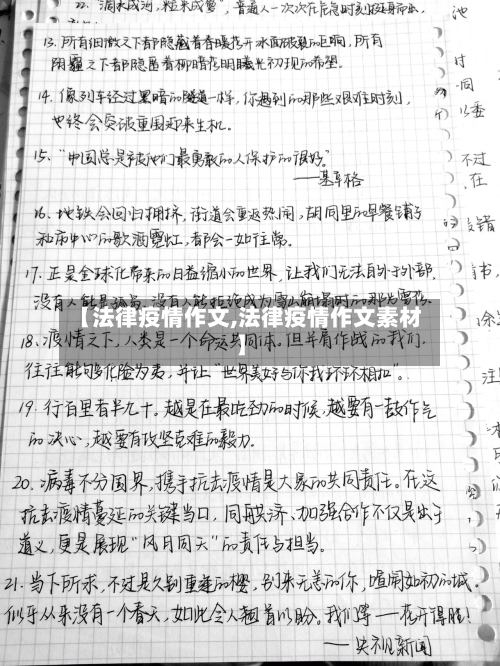 22.“滴水成河，粒米成箩”，普通人一次次在危急时刻挺身而出，
13.所有细微之下都隐藏着春暖花开冰面破裂的巨响，所有
阴霾之下都隐匿着柳暗花明曙光初现的希望。
14.像列车经过黑暗的隧道一样，你遇到的那些艰难时刻，
也终会突破重围迎来生机。
15.“中国总是被他们最勇敢的人保护的很好。”
——基辛格
16.地铁会回归拥挤，街道会重返热闹，胡同里的早餐铺子
和市中心的歌酒霓虹，都会一如往常。
17.正是全球化带来的日益缩小的世界，让我们无法自外于外部，
没有人能是孤岛，没有人能拒绝成为雪山崩塌时的那片雪花。
【法律疫情作文,法律疫情作文素材
】
18.疫情之下，人类是一个命运共同体，但并肩作战的我们，
往往能够化险为夷，并让“世界美好与你我环环相扣”。
19.行百里者半九十，越是在最吃劲的时候，越要有一鼓作气
的决心，越要有攻坚克难的毅力。
20.病毒不分国界，携手抗击疫情是大家的共同责任。在这
抗击疫情蔓延的关键当口，同舟共济、加强合作不仅是出于
道义，更是展现“风月同天”的责任与担当。
21.当下所求，不过是久别重逢的樱，别来无恙的你，喧闹如初的城。
似乎从来没有一个春天，如此令人翘首以盼。我们等——花开得胜！
——央视新闻